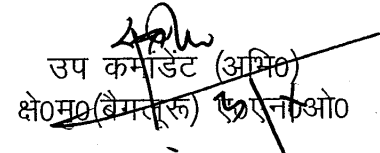 उप कमांडेंट (अभि०)
क्षे०मु०(बैंगलूरू) एन०ओ०